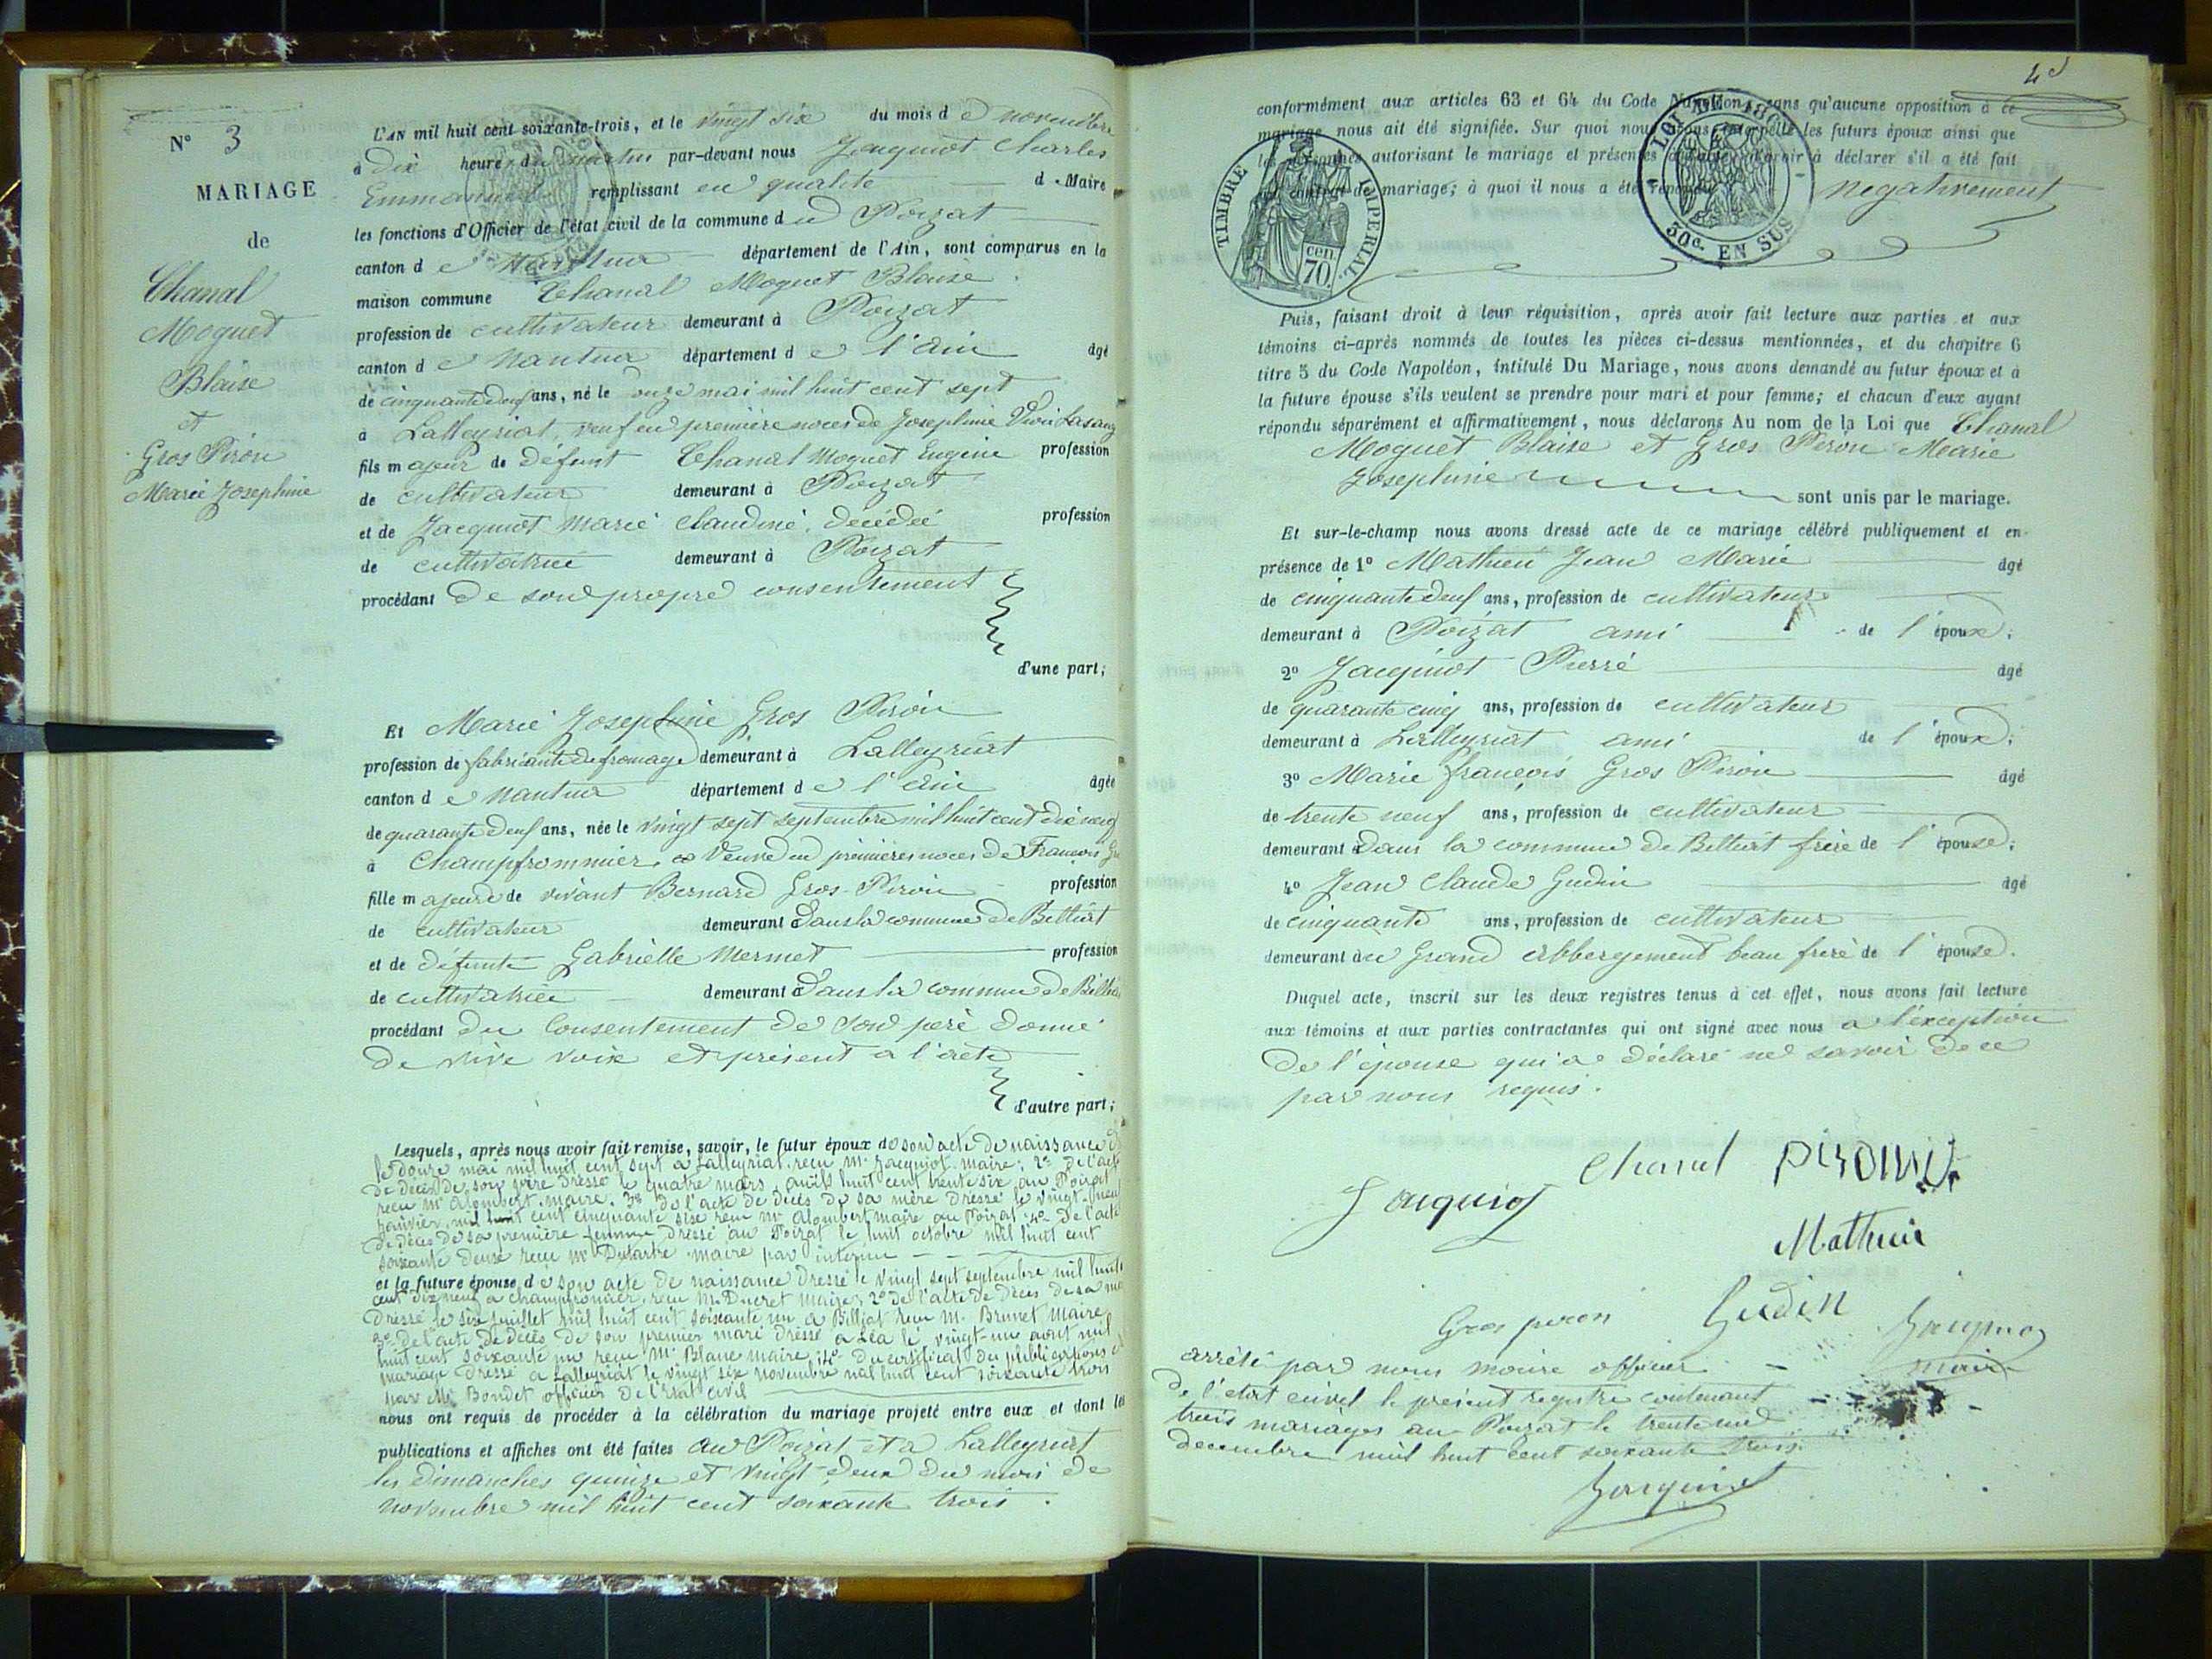 N° 3
MARIAGE
de
Chanal
Moguet
Blaise
et
Gros Piron
Marie Josephine
L'AN mil huit cent soixante-trois, et le vingt six du mois d e novembre
à dix heures du matin par-devant nous Jacquiot Charles
Emmanuel remplissant en qualité d e Maire
les fonctions d'Officier de l'état civil de la commune d u Poizat
canton d e Nantua département de l'Ain, sont comparus en la
maison commune Chanal Moguet Blaise
profession de cultivateur demeurant à Poizat
canton d e Nantua département d e l'ain âgé
de cinquante deux ans, né le onze mai mil huit cent sept
à Lalleyriat, veuf en première noces de Josephine
fils majeur de défunt Chanal Moguet Eugène profession
de cultivateur demeurant à Poizat
et de Jacquiot Marie Claudine, décédée profession
de cultivatrice demeurant à Poizat
procédant de son propre consentement
d'une part;
Et Marie Josephine Gros Piron
profession de fabriante de fromage demeurant à Lalleyriat
canton d e Nantua département d e l'ain âgée
de quarante deux ans, née le vingt sept septembre mil huit cent dix neuf
à Champfrommier, veuve en premières noces de François
fille majeure de vivant Bernard Gros-Piron profession
de cultivateur demeurant dans la commune de Billiat
et de défunte Gabrielle Mermet profession
de cultivatrice demeurant dans la commune de
procédant du consentement de son père donné
de vive voix et présent a l'acte
d'autre part;
Lesquels, après nous avoir fait remise, savoir, le futur époux de son acte de naissance
le douze mai mil huit cent sept a Lalleyriat reçu Mr Jacquiot maire; 2° de l'acte
de décès de son père dressé le quatre mars mil huit cent trente six au Poizat
reçu Mr Alombert maire. 3° de l'acte de décès de sa mère dressé le vingt-neuf
janvier mil huit cent cinquante six reçu Mr Alombert maire au Poizat 4° de l'acte
de décès de sa première femme dressé au Poizat le huit octobre mil huit cent
soixante deux reçu Mr Dutartre maire par interim
et la future épouse d e son acte de naissance dressé le vingt sept septembre mil huit
cent dix neuf a champfromier, reçu M. Ducret maire; 2° de l'acte de décès de sa
dressé le six juillet mil huit cent soixante un a Billiat reçu M. Brunet maire
3° de l'acte de décès de son premier mari dressé a Léa le vingt-un aout mil
huit cent soixante un reçu Mr Blanc maire; 4° du certificat du publications
mariage dressé a Lalleyriat le vingt six novembre mil huit cent soixante trois
par Mr Bondet officier de l'état civil
nous ont requis de procéder à la célébration du mariage projeté entre eux et dont les
publications et affiches ont été faites au Poizat et a Lalleyriat
les dimanches quinze et vingt-deux du mois de
novembre mil huit cent soixante trois.
conformément aux articles 63 et 64 du Code Napoléon, sans qu'aucune opposition à ce
mariage nous ait été signifiée. Sur quoi nous avons interpellé les futurs époux ainsi que
les personnes autorisant le mariage et présentes à l'acte, d'avoir à déclarer s'il a été fait
contrat de mariage; à quoi il nous a été répondu negativement
TIMBRE IMPERIAL
cen
70.
LOI DE 1862
50c. EN SUS
Puis, faisant droit à leur réquisition, après avoir fait lecture aux parties et aux
témoins ci-après nommés de toutes les pièces ci-dessus mentionnées, et du chapitre 6
titre 5 du Code Napoléon, intitulé Du Mariage, nous avons demandé au futur époux et à
la future épouse s'ils veulent se prendre pour mari et pour femme; et chacun d'eux ayant
répondu séparément et affirmativement, nous déclarons Au nom de la Loi que Chanal
Moguet Blaise et Gros Piron Marie
Josephine sont unis par le mariage.
Et sur-le-champ nous avons dressé acte de ce mariage célébré publiquement et en
présence de 1° Mathieu Jean Marie âgé
de cinquante deux ans, profession de cultivateur
demeurant à Poizat ami de l'époux;
2° Jacquiot Pierre âgé
de quarante cinq ans, profession de cultivateur
demeurant à Lalleyriat ami de l'époux;
3° Marie françois Gros Piron âgé
de trente neuf ans, profession de cultivateur
demeurant dans la commune de Billiat frère de l'épouse;
4° Jean Claude Gudin âgé
de cinquante ans, profession de cultivateur
demeurant au Grand abbergement beau frère de l'épouse.
Duquel acte, inscrit sur les deux registres tenus à cet effet, nous avons fait lecture
aux témoins et aux parties contractantes qui ont signé avec nous a l'exception
de l'épouse qui a déclaré ne savoir de ce
par nous requis.
Chanal Piron
Jacquiot
Mathieu
Gros piron Gudin Jacquiot
maire
arrêté par nous maire officier
de l'etat civil le present registre contenant
trois mariages au Poizat le trente un
decembre mil huit cent soixante trois.
Jacquiot